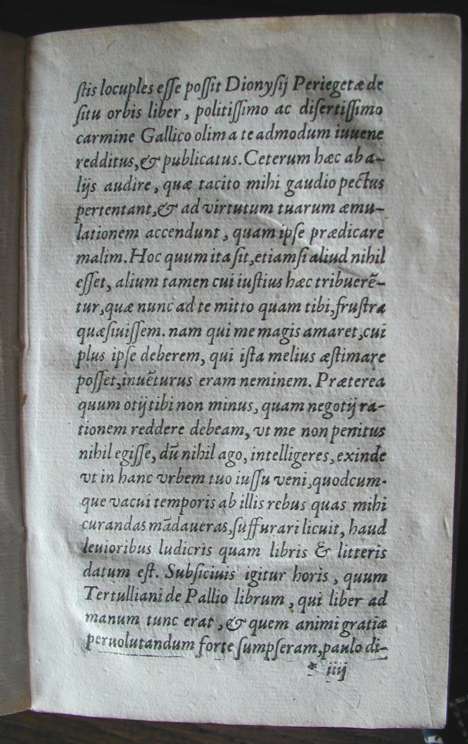 ſtis locuples eſſe poſſit Dionyſij Periegetæ de
ſitu orbis liber, politiſſimo ac diſertiſſimo
carmine Gallico olim a te admodum iuuene
redditus, & publicatus. Ceterum hæc ab a-
lijs audire, quæ tacito mihi gaudio pectus
pertentant, & ad virtutum tuarum æmu-
lationem accendunt, quam ipſe prædicare
malim. Hoc quum ita ſit, etiamſi aliud nihil
eſſet, alium tamen cui iuſtius hæc tribuerē-
tur, quæ nunc ad te mitto quam tibi, fruſtra
quæſiuiſſem. nam qui me magis amaret, cui
plus ipſe deberem, qui iſta melius æſtimare
poſſet, inuēturus eram neminem. Præterea
quum otij tibi non minus, quam negotij ra-
tionem reddere debeam, vt me non penitus
nihil egiſſe, dū nihil ago, intelligeres, exinde
vt in hanc vrbem tuo iuſſu veni, quodcum-
que vacui temporis ab illis rebus quas mihi
curandas mādaueras, ſuffurari licuit, haud
leuioribus ludicris quam libris & litteris
datum eſt. Subſiciuis igitur horis, quum
Tertulliani de Pallio librum, qui liber ad
manum tunc erat, & quem animi gratia
peruolutandum forte ſumpſeram, paulo di-
* iiij